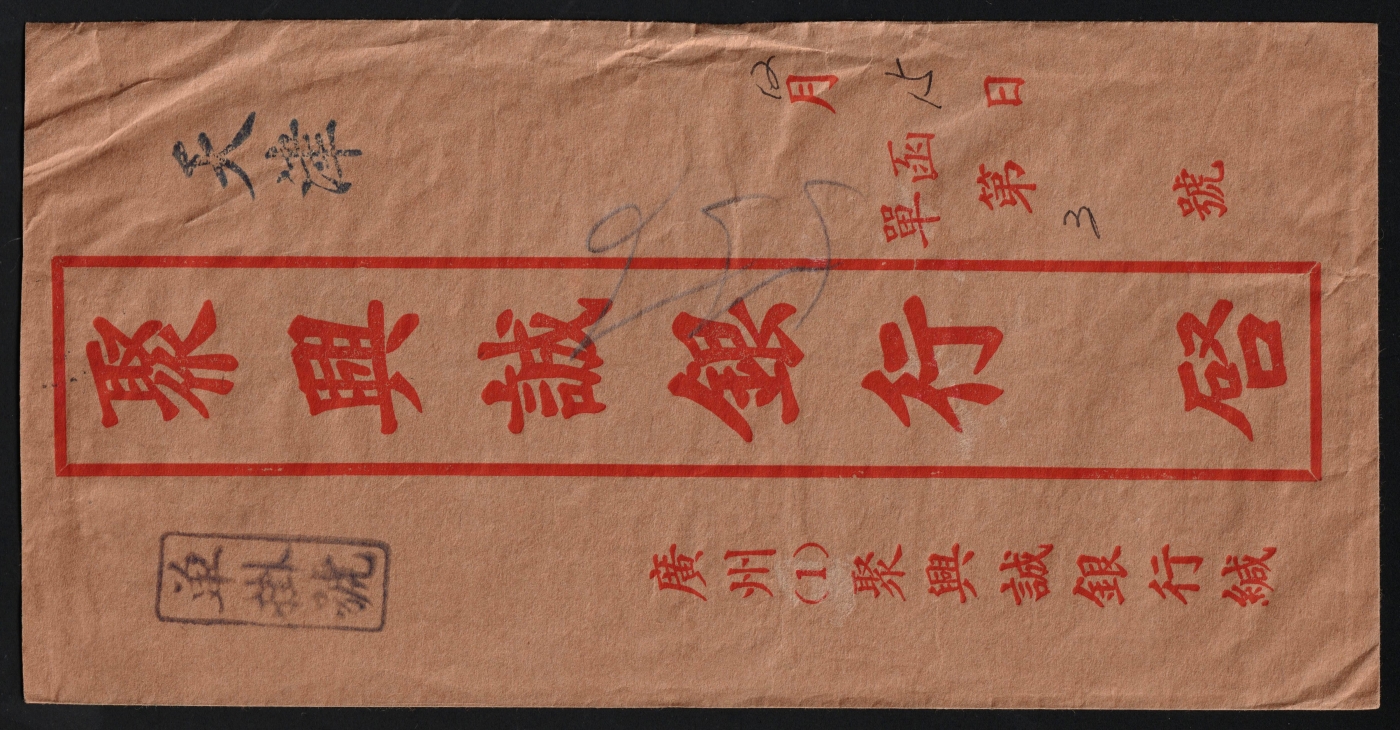 天津
月 15 日
單函第 3 號
聚興誠銀行 启
单掛號
廣州(1)聚興誠銀行緘